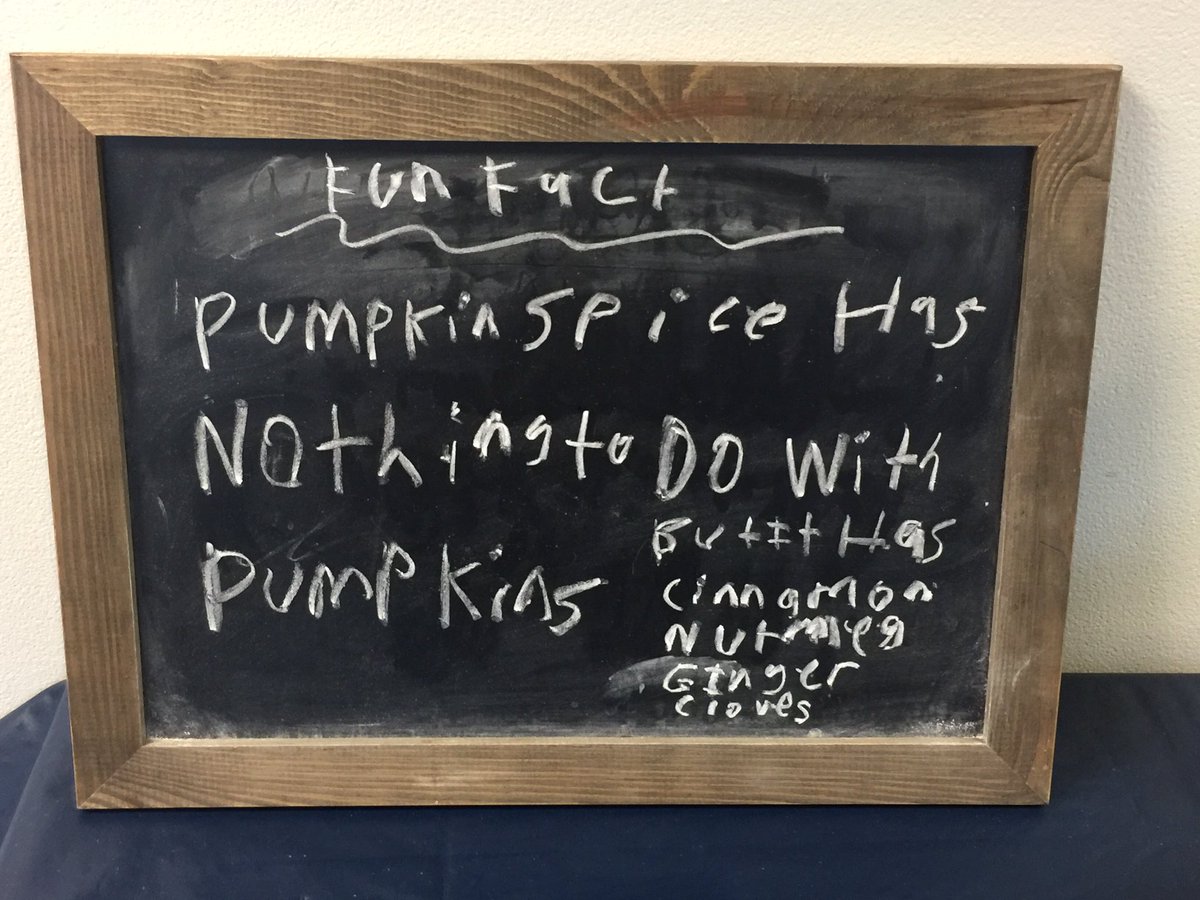 Fun Fact
Pumpkin Spice Has
Nothing to Do With
Pumpkins
But It Has
Cinnamon
Nutmeg
Ginger
Cloves